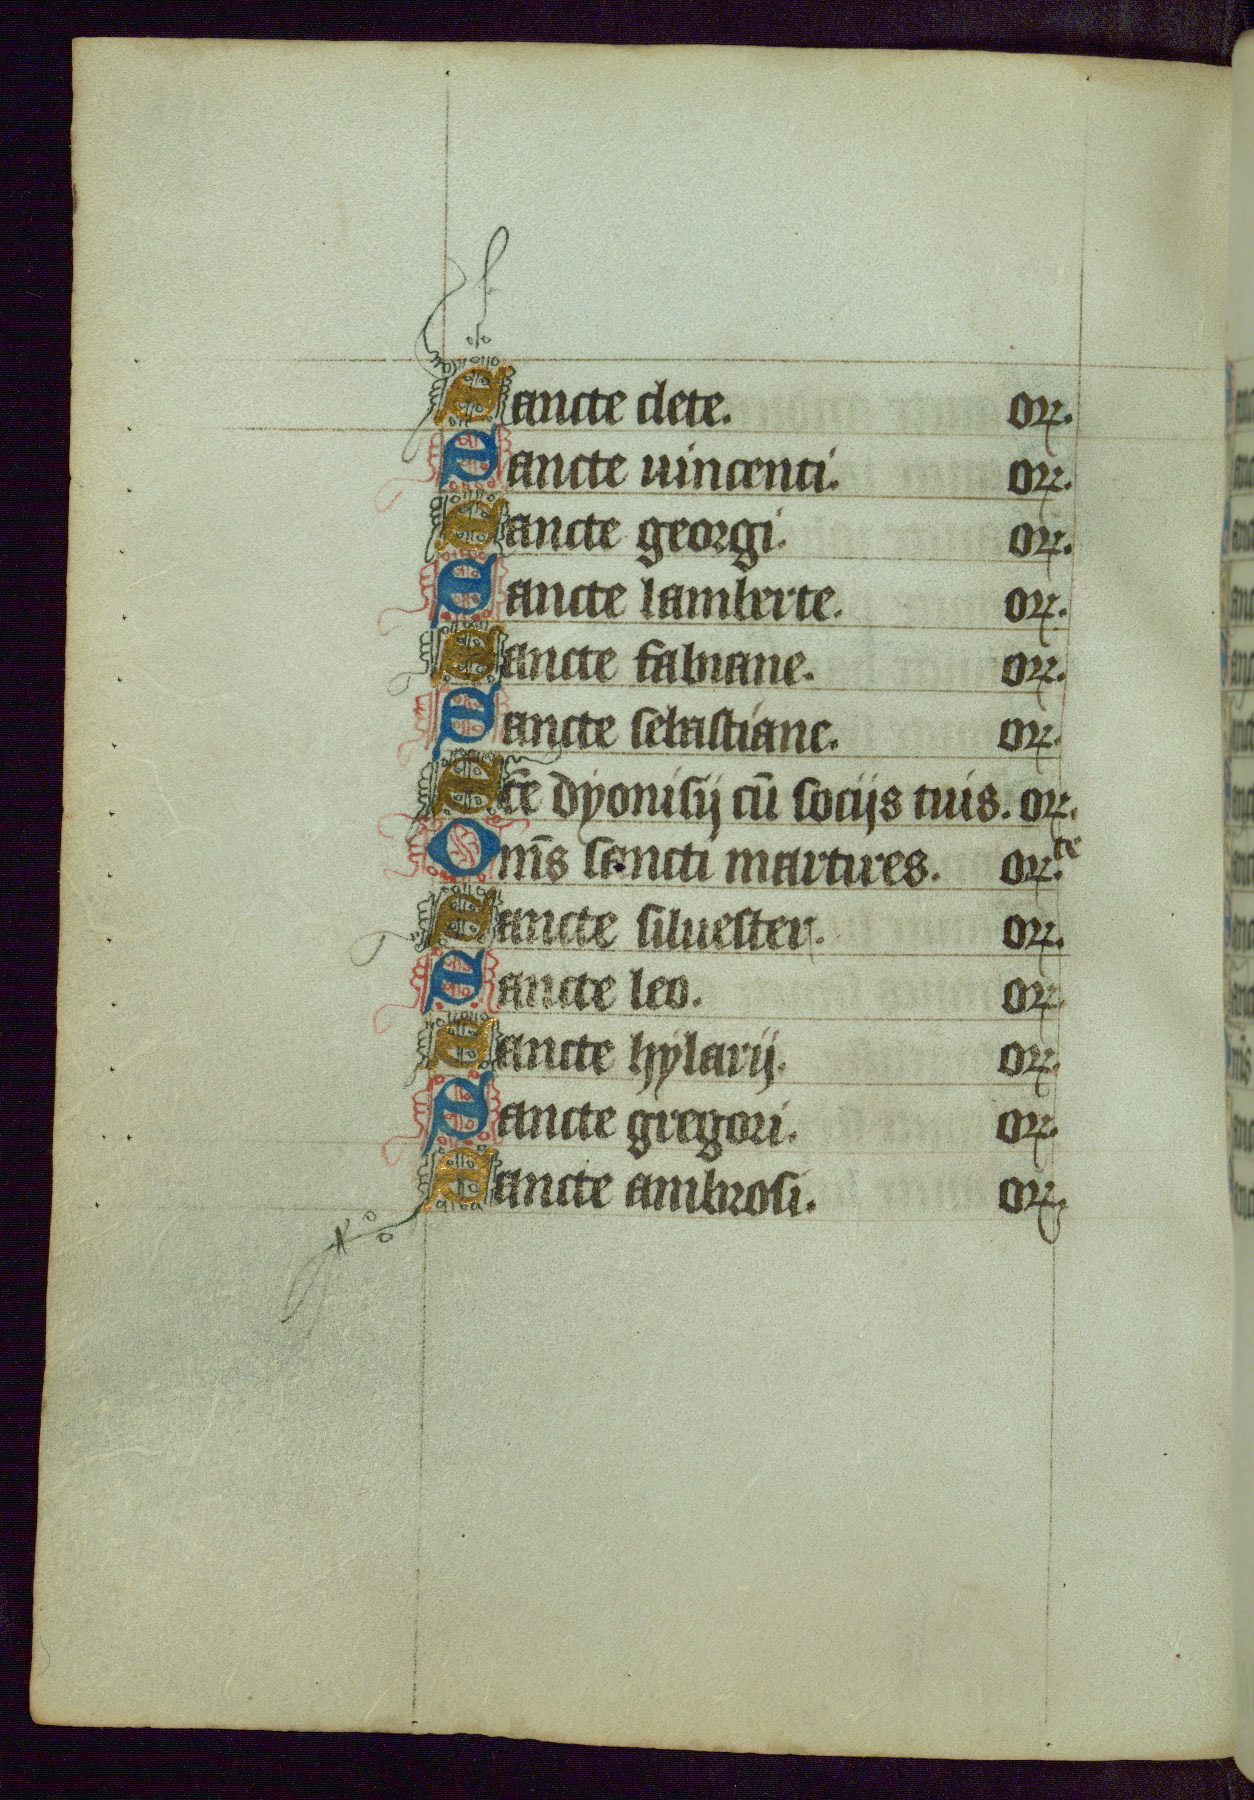 Sancte clete. oꝝ.
Sancte uincenti. oꝝ.
Sancte georgi. oꝝ.
Sancte lamberte. oꝝ.
Sancte fabiane. oꝝ.
Sancte sebastiane. oꝝ.
Scē dyonisij cū socijs tuis. oꝝ.
Om̄s sancti martires. oꝝ.te
Sancte siluester. oꝝ.
Sancte leo. oꝝ.
Sancte hylarij. oꝝ.
Sancte gregori. oꝝ.
Sancte ambrosi. oꝝ.